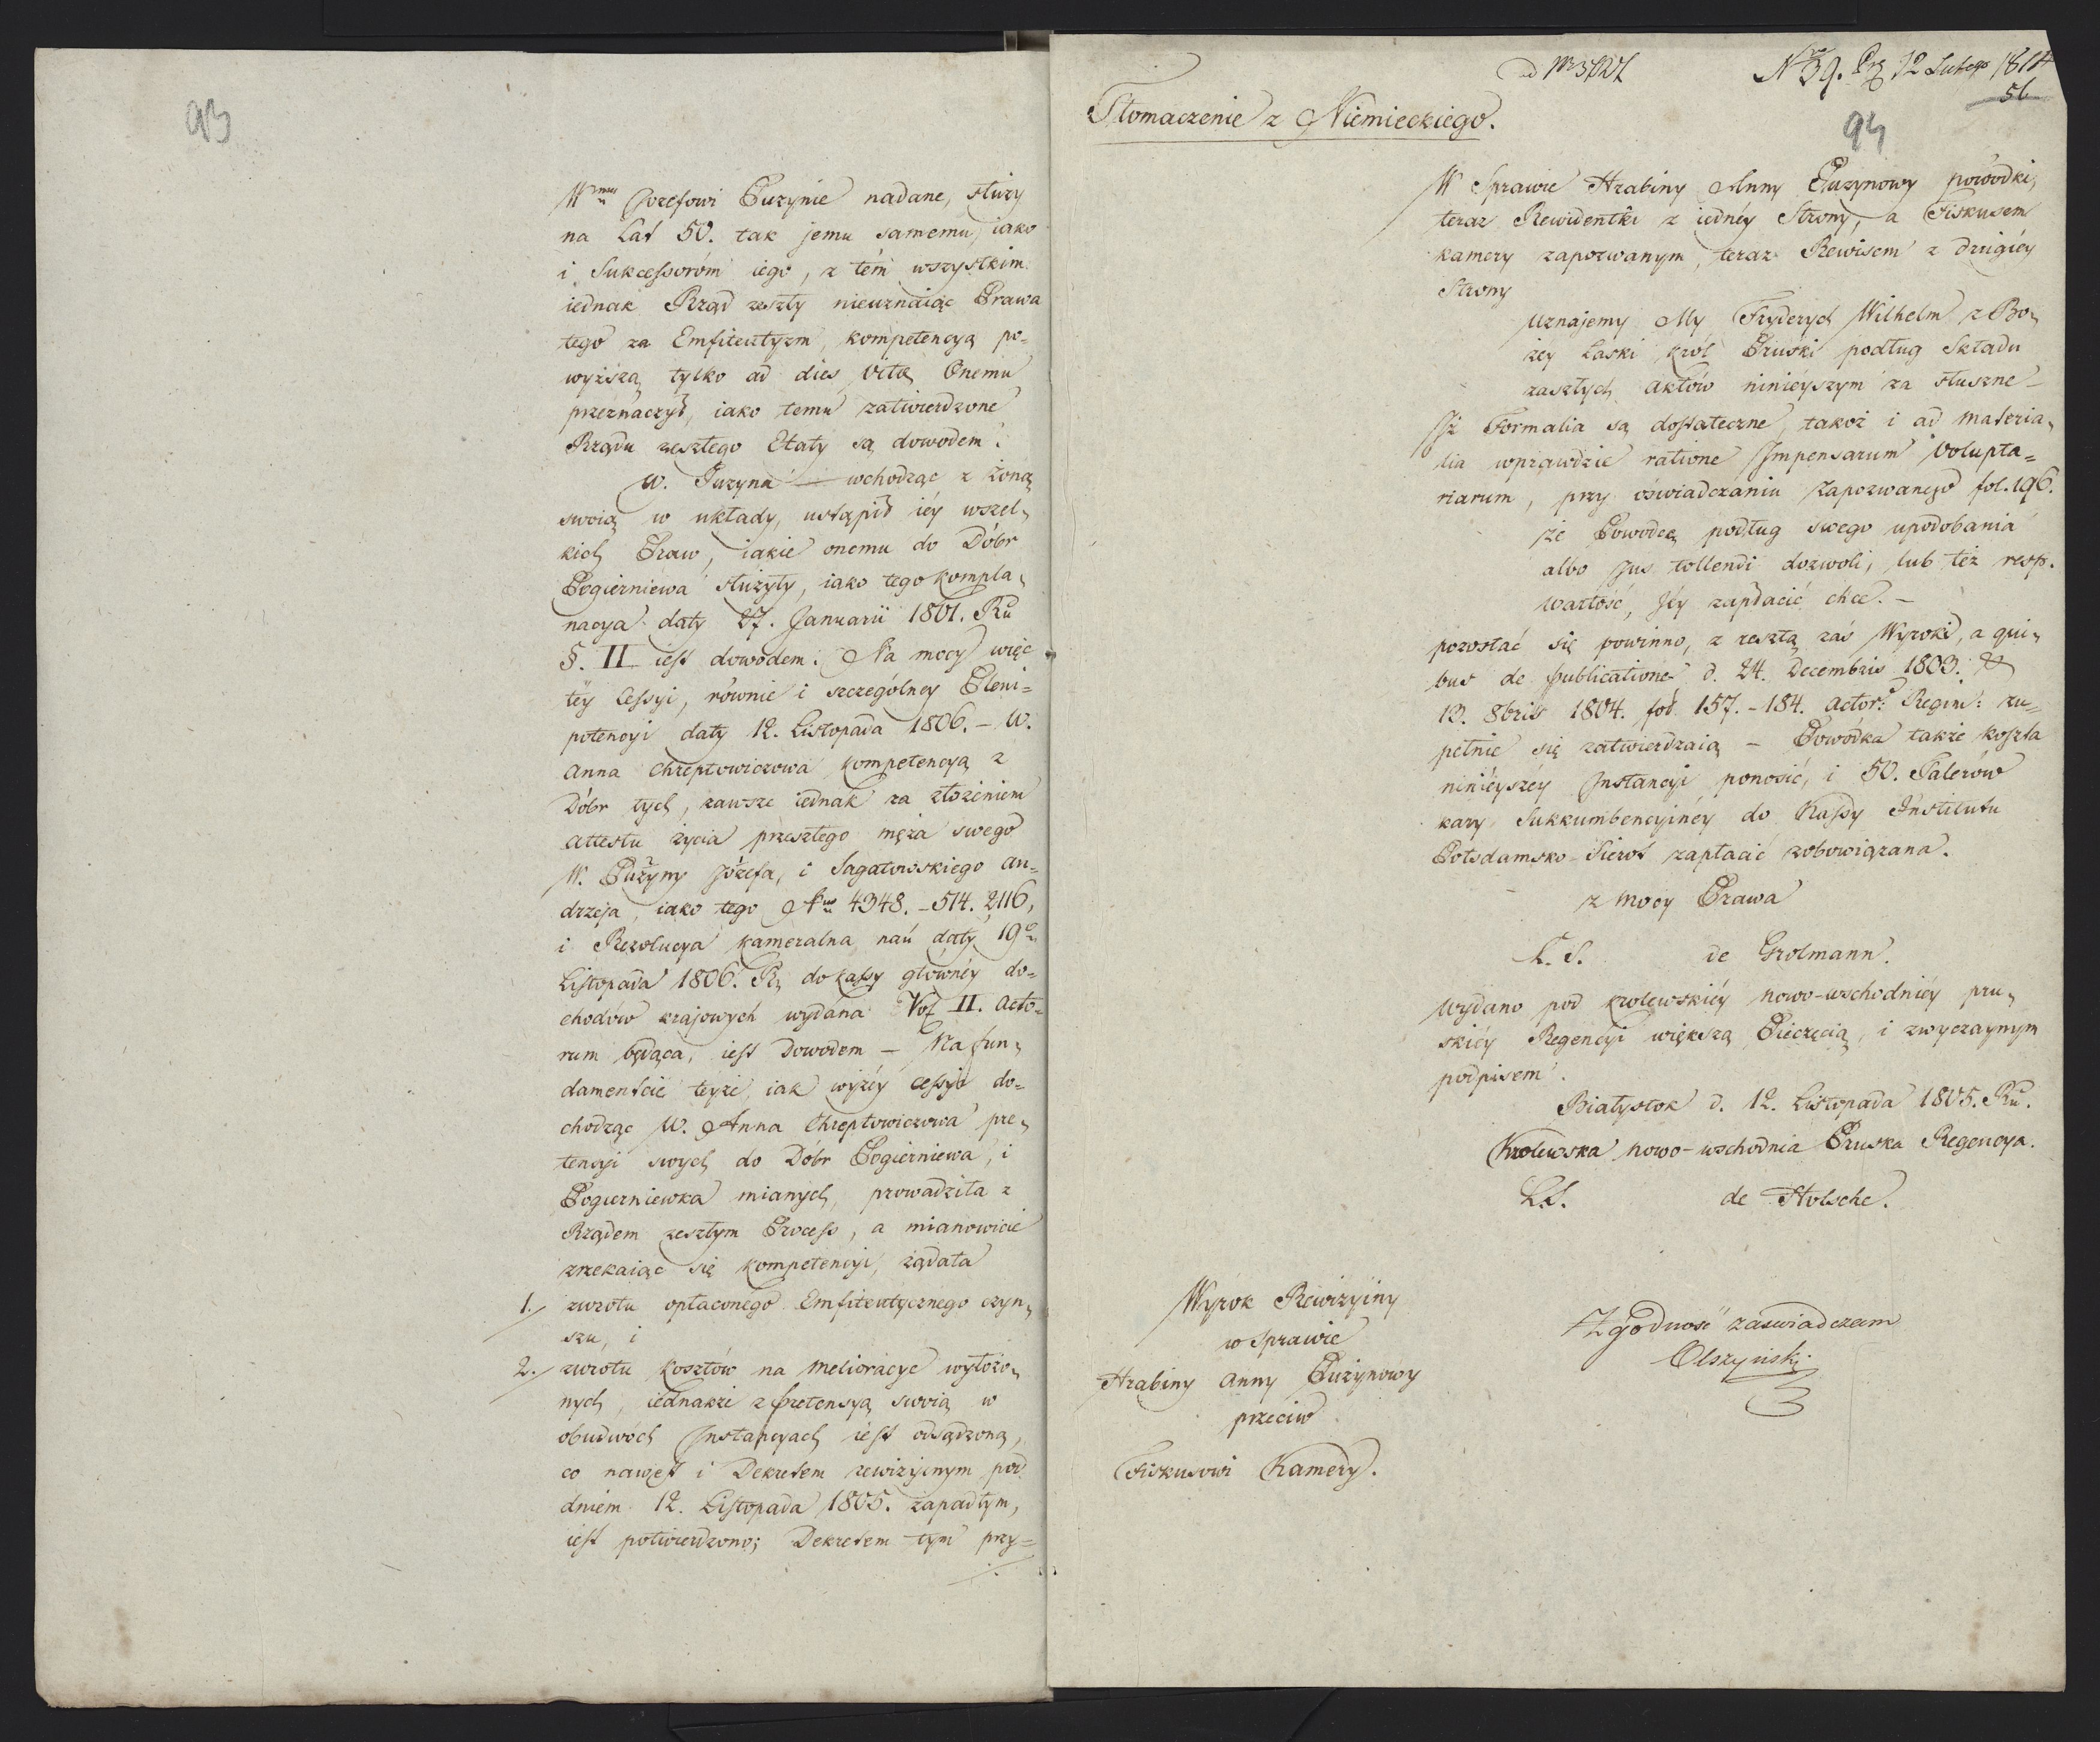 93
Wmu Jozefowi Puzynie nadane, służy
na Lat 50. tak jemu samemu, iako
i Sukcessoróm iego, z tém wszystkim
iednak Rząd zeszły nieuznaiąc Prawa
tego za Emfiteutyzm, kompetencyą po=
wyższą tylko ad dies Vitæ Onemu
przeznaczył, iako temu zatwierdzone
Rządu zeszłego Etaty są dowodem.
W. Puzyna wchodząc z żoną
swoią w układy, ustąpił iéy wszel=
kich Praw, iakie onemu do Dóbr
Pogierniewa służyły, iako tego kompla=
nacya daty 27. Januarii 1801. Ru
§. II iest dowodem. Na mocy więc
téy Cessyi, równie i szczególney Pleni=
potencyi daty 12. Listopada 1806. – W.
Anna Chreptowiczowa kompetencyą z
Dóbr tych, zawsze iednak za złożeniem
attestu życia przeszłego męża swego
W. Puzyny Józefa, i Sagatowskiego An=
drzeja, iako tego 4348. – 514. 2116,
i Rezolucya kameralna nań daty 19o
Listopada 1806. R, do kassy głównéy do=
chodów krajowych wydana Vol II. Acto=
rum będąca, iest Dowodem – Na fun=
damencie teyże, iak wyżéy Cessyi do=
chodząc W. Anna Chreptowiczowa pre=
tensyi swych do Dóbr Pogierniewa, i
Pogierniewka mianych, prowadziła z
Rządem zeszłym Process, a mianowicie
zrzekaiąc się kompetencyi, żądała
1. zwrotu opłaconego Emfiteutycznego czyn=
szu, i
2. zwrotu kosztów na melioracye wyłożo=
nych, iednakże z pretensyą swoią w
obudwóch Instancyach iest odsądzoną,
co nawet i Dekretem rewizyinym pod
dniem 12. Listopada 1805. zapadłym,
iest potwierdzono; Dekretem tym przy=
ad Nr
Nro 39. Prz 12 Lutego 1814
56
94
Tłomaczenie z Niemieckiego.
W Sprawie Hrabiny Anny Puzynowy powodki,
teraz Rewidentki z iednéy Strony, a Fiskusem
kamery zapozwanym, teraz Rewisem z drugiéy
Strony
Uznajemy My Fryderych Wilhelm z Bo=
żey Łaski król Pruski podług Składu
zaszłych aktów ninieyszym za słuszne –
Iż Formalia są dostateczne, takoż i ad materia=
lia wprawdzie ratione Impensarum volupta=
riarum, przy oświadczaniu Zapozwanego fol. 196.
że Powodce podług swego upodobania
albo Jus tollendi dozwoli, lub też resp.
wartość, Jéy zapłacić chce. –
pozostać się powinno, z resztą zaś Wyroki, a qui=
bus de publicatione d. 24. Decembris 1803. &
13. 8bris 1804. fol. 157. – 184. actor: Regim: zu=
pełnie się zatwierdzaią – Powódka także koszta
ninieyszey Instancyi ponosić, i 50. Talerów
kary Sukkumbencyinéy do Kassy Institutu
Potsdamsko-Sierot zapłacić zobowiązana.
z Mocy Prawa
L. S. de Grolmann.
Wydano pod krolewskiéy nowo-wschodniéy pru=
skiéy Regencyi większą Pieczęcią, i zwyczaynym
podpisem.
Białystok d. 12. Listopada 1805. Ru.
Krolewska nowo-wschodnia Pruska Regencya.
L.S. de Holsche.
Wyrok Rewizyiny
w Sprawie
Hrabiny Anny Puzynowy
przeciw
Fiskusowi Kamery.
Zgodność zaświadczam
Olszyński